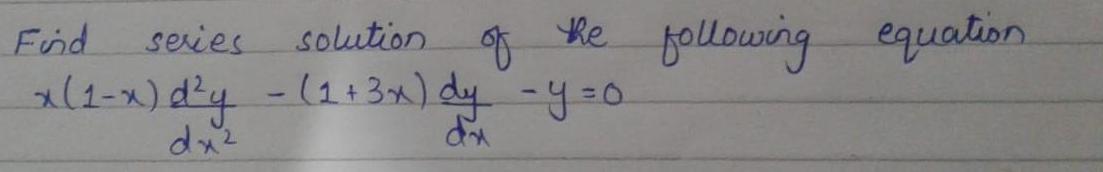 Find series solution of the following equation
x(1-x) d²y/dx² - (1+3x) dy/dx - y = 0